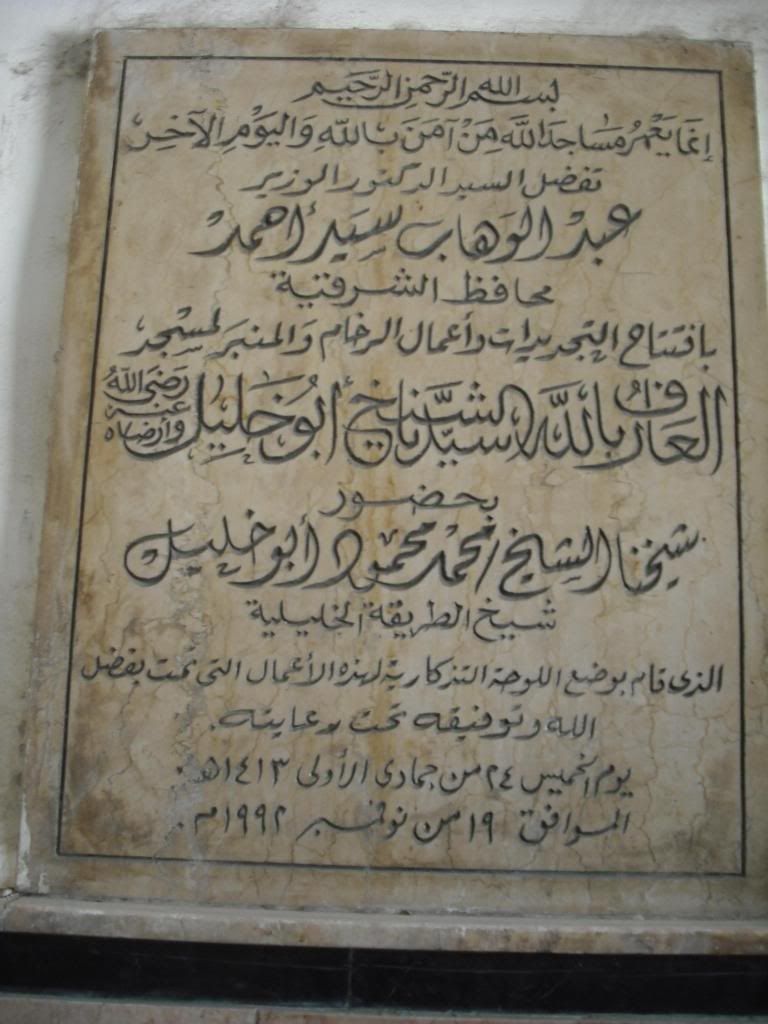 بسم الله الرحمن الرحيم
إنما يَعْمُرُ مَسَاجِدَ اللَّهِ مَنْ آمَنَ بِاللَّهِ وَالْيَوْمِ الآخِرِ
تفضل السيد الدكتور الوزير
عبد الوهاب سيد أحمد
محافظ الشرقية
بافتتاح التجديدات وأعمال الرخام والمنبر لمسجد
العارف بالله سيدنا الشيخ أبو خليل رضى الله عنه وأرضاه
بحضور
شيخنا الشيخ/ محمد محمود أبو خليل
شيخ الطريقة الخليلية
الذى قام بوضع اللوحة التذكارية لهذه الأعمال التى تمت بفضل
الله وتوفيقه تحت رعايته.
يوم الخميس ٢٤ من جمادى الأولى ١٤١٣هـ.
الموافق ١٩ من نوفمبر ١٩٩٢م.